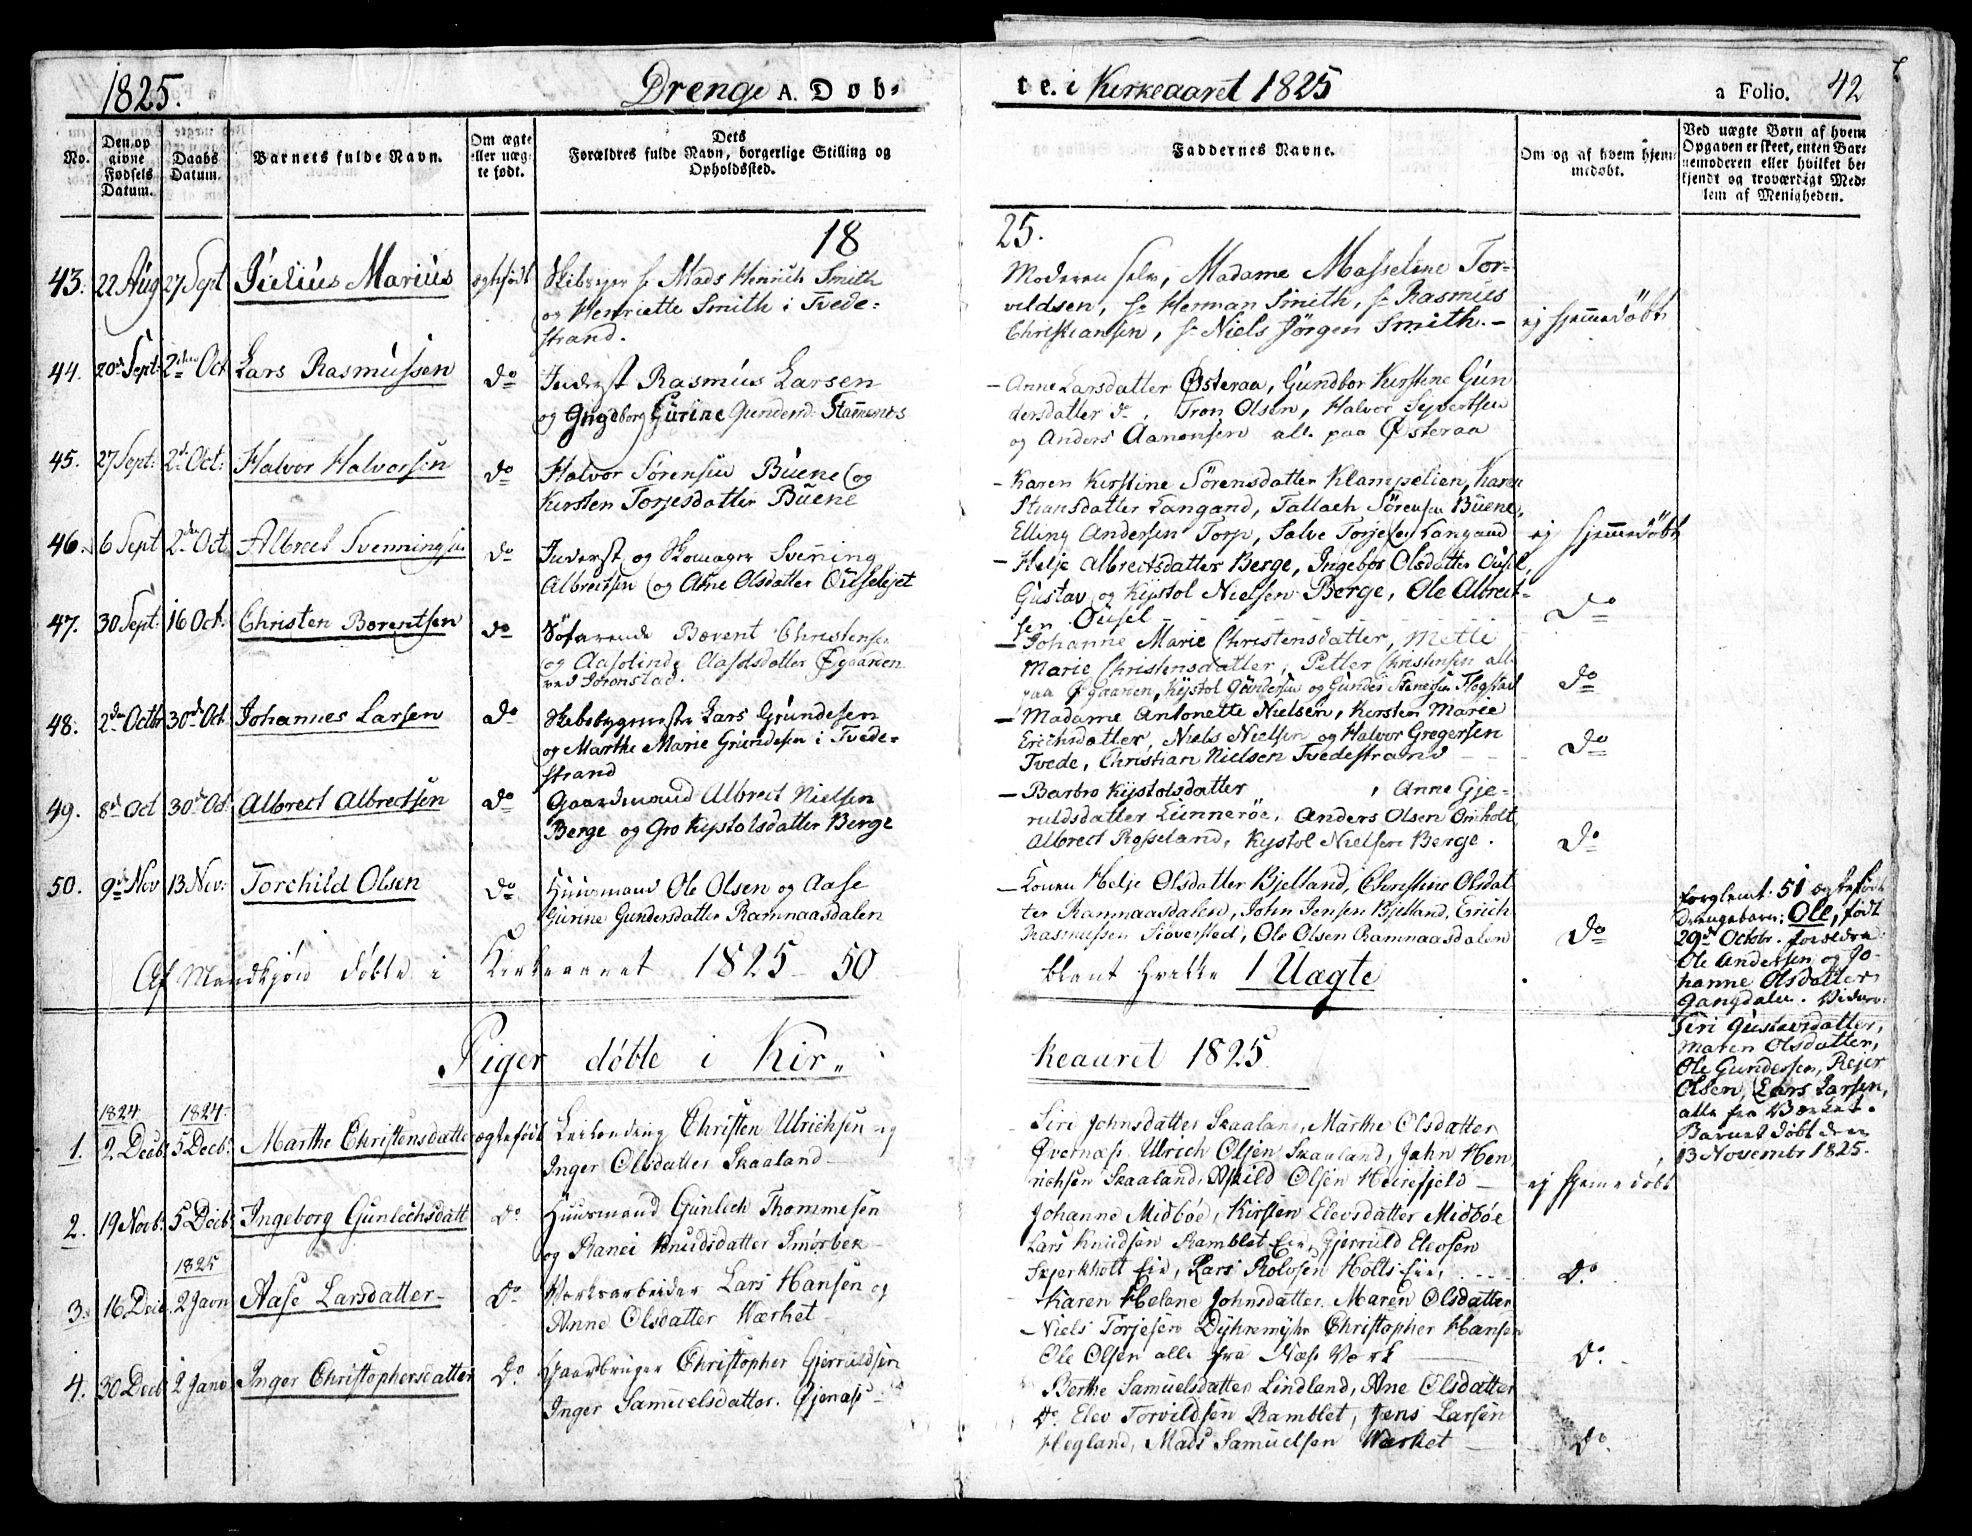 1825. Drenge A. Døb-
te. i Kirkeaaret 1825 a Folio. 42
No. Den opgivne Fødsels Datum. Daabs Datum. Barnets fulde Navn. Om ægte eller uægte født. Dets Forældres fulde Navn, borgerlige Stilling og Opholdssted.
Faddernes Navne. Om og af hvem hjemmedøbt. Ved uægte Børn af hvem Opgaven er skeet, enten Barnemoderen eller hvilket bekjendt og troværdigt Medlem af Menigheden.
18 25.
43. 22 Aug 27 Sept Julius Marius ægtefødt Skibseyer Hr Mads Henrich Smith
og Henriette Smith i Tvede-
strand.
Moderen selv, Madame Masseline Tor-
vildsen, Hr Herman Smith, Hr Rasmus
Christiansen, Hr Niels Jörgen Smith. - ej hjemmedøbt
44. 20de Sept: 2den Oct Lars Rasmussen do Inderst Rasmus Larsen
og Ingeborg Gurine Gundersd:
- Anne Larsdatter Østeraa, Gundbor Kirstine Gun
dersdatter do, Tron Olsen, Halvor Syvertsen
og Anders Aanonsen all. paa Østeraa
45. 27 Sept: 2d Oct: Halvor Halvorsen do Halvor Sørensen Buene og
Kirsten Torjesdatter Buene
- Karen Kirstine Sörensdatter Klampelien, Karen
Langand, Tallach Sörensen Buene,
Elling Andersen Torp, Salve Torjesen Langand ej hjemmedøbt
46. 6 Sept 2den Oct Albrect Svenningsen do Inderst og Skomager Svenning
Albrectsen og Ane Olsdatter Ouselejet
- Helje Albrectsdatter Berge, Ingebor Olsdatter Ousel,
Gustav og Kjstol Nielsen Berge, Ole Albrect-
sen Ousel do
47. 30 Sept: 16 Oct. Christen Børentsen do Søfarende Børent Christensen
og Aasolinde Aasolsdatter Øgaarden
ved Songstad.
- Johanne Marie Christensdatter, Mette
Marie Christensdatter, Petter Christensen all.
paa Øgaarden, Kjstol Gundersen og Gunder Flogstad do
48. 2den Octbr 30de Oct. Johannes Larsen do Skibsbygmester Lars Grundesen
og Marthe Marie Grundesen i Tvede-
strand
- Madame Antonette Nielsen, Kirsten Marie
Erichsdatter, Niels Nielsen og Halvor Gregersen
Tvede, Christian Nielsen Tvedestrand do
49. 8de Oct 30de Oct. Albrect Albrectsen do Gaardmand Albrect Nielsen
Berge og Gro Kjstolsdatter Berge
- Barbro Kjstolsdatter , Anne Gje-
ruldsdatter Lunneröe, Anders Olsen Omholt,
Albrect Rosseland, Kjstol Nielsen Berge. do
50. 9de Nov 13 Nov: Torchild Olsen do Huusmand Ole Olsen og Aase
Gurine Gundersdatter Ramnaasdalen
- Konen Helje Olsdatter Bjelland, Christine Olsdat
ter Ramnaasdalen, John Jensen Bjelland, Erich
Rasmussen Staversted, Ole Olsen Ramnaasdalen do
Af Mandkjön døbte i Kirkeaaret 1825 - 50
blant hvilke 1 Uægte
Forglemt. 51 ægtefødt
Drengebarn: Ole, født
29de Octobr. Forældre
Ole Andersen og Jo-
hanne Olsdatter
Gangdalen.
Siri Gustavsdatter,
Maren Olsdatter,
Ole Gundersen, Rejer
Olsen, Lars Larsen,
alle fra Værket.
Barnet døbt den
13 Novembr 1825.
Piger døbte i Kir-
keaaret 1825.
1824 1824
1. 2 Decb: 5 Decb: Marthe Christensdatter ægtefødt Leilending Christen Ulrichsen og
Inger Olsdatter Skaaland
Siri Johnsdatter Skaaland, Marthe Olsdatter
Øvernæs. Ulrich Olsen Skaaland, John Hen
richsen Skaaland, Askild Olsen Heirefjeld - ej hjemedøbt
2. 19 Novb: 5 Decb: Ingeborg Gunlechsdatt do Huusmand Gunlech Thommesen
og Ranei Knudsdatter Smørbek
Johanne Midbøe, Kirsten Elevsdatter Midbøe
Lars Knudsen Ramblet Eie, Gjeruld Elevsen
Skjerkholt Eie, Lars Rolvsen Holts Eie, do
1825
3. 16 Decb. 2 Janv Aase Larsdatter do Verksarbeider Lars Hansen og
Anne Olsdatter Værket
Karen Helene Johnsdatter. Maren Olsdatter
Niels Torjesen Dyhremyhr Christopher Hansen
Ole Olsen alle fra Næs Værk do
4. 30 Decb 2 Janv Inger Christophersdatter do Gaardbruger Christopher Gjerruldsen
Inger Samuelsdatter. Øjenæs
Berthe Samuelsdatter Lindland, Ane Olsdatter
do. Elev Torvildsen Ramblet, Jens Larsen
Hegland, Mads Samuelsen Værket do